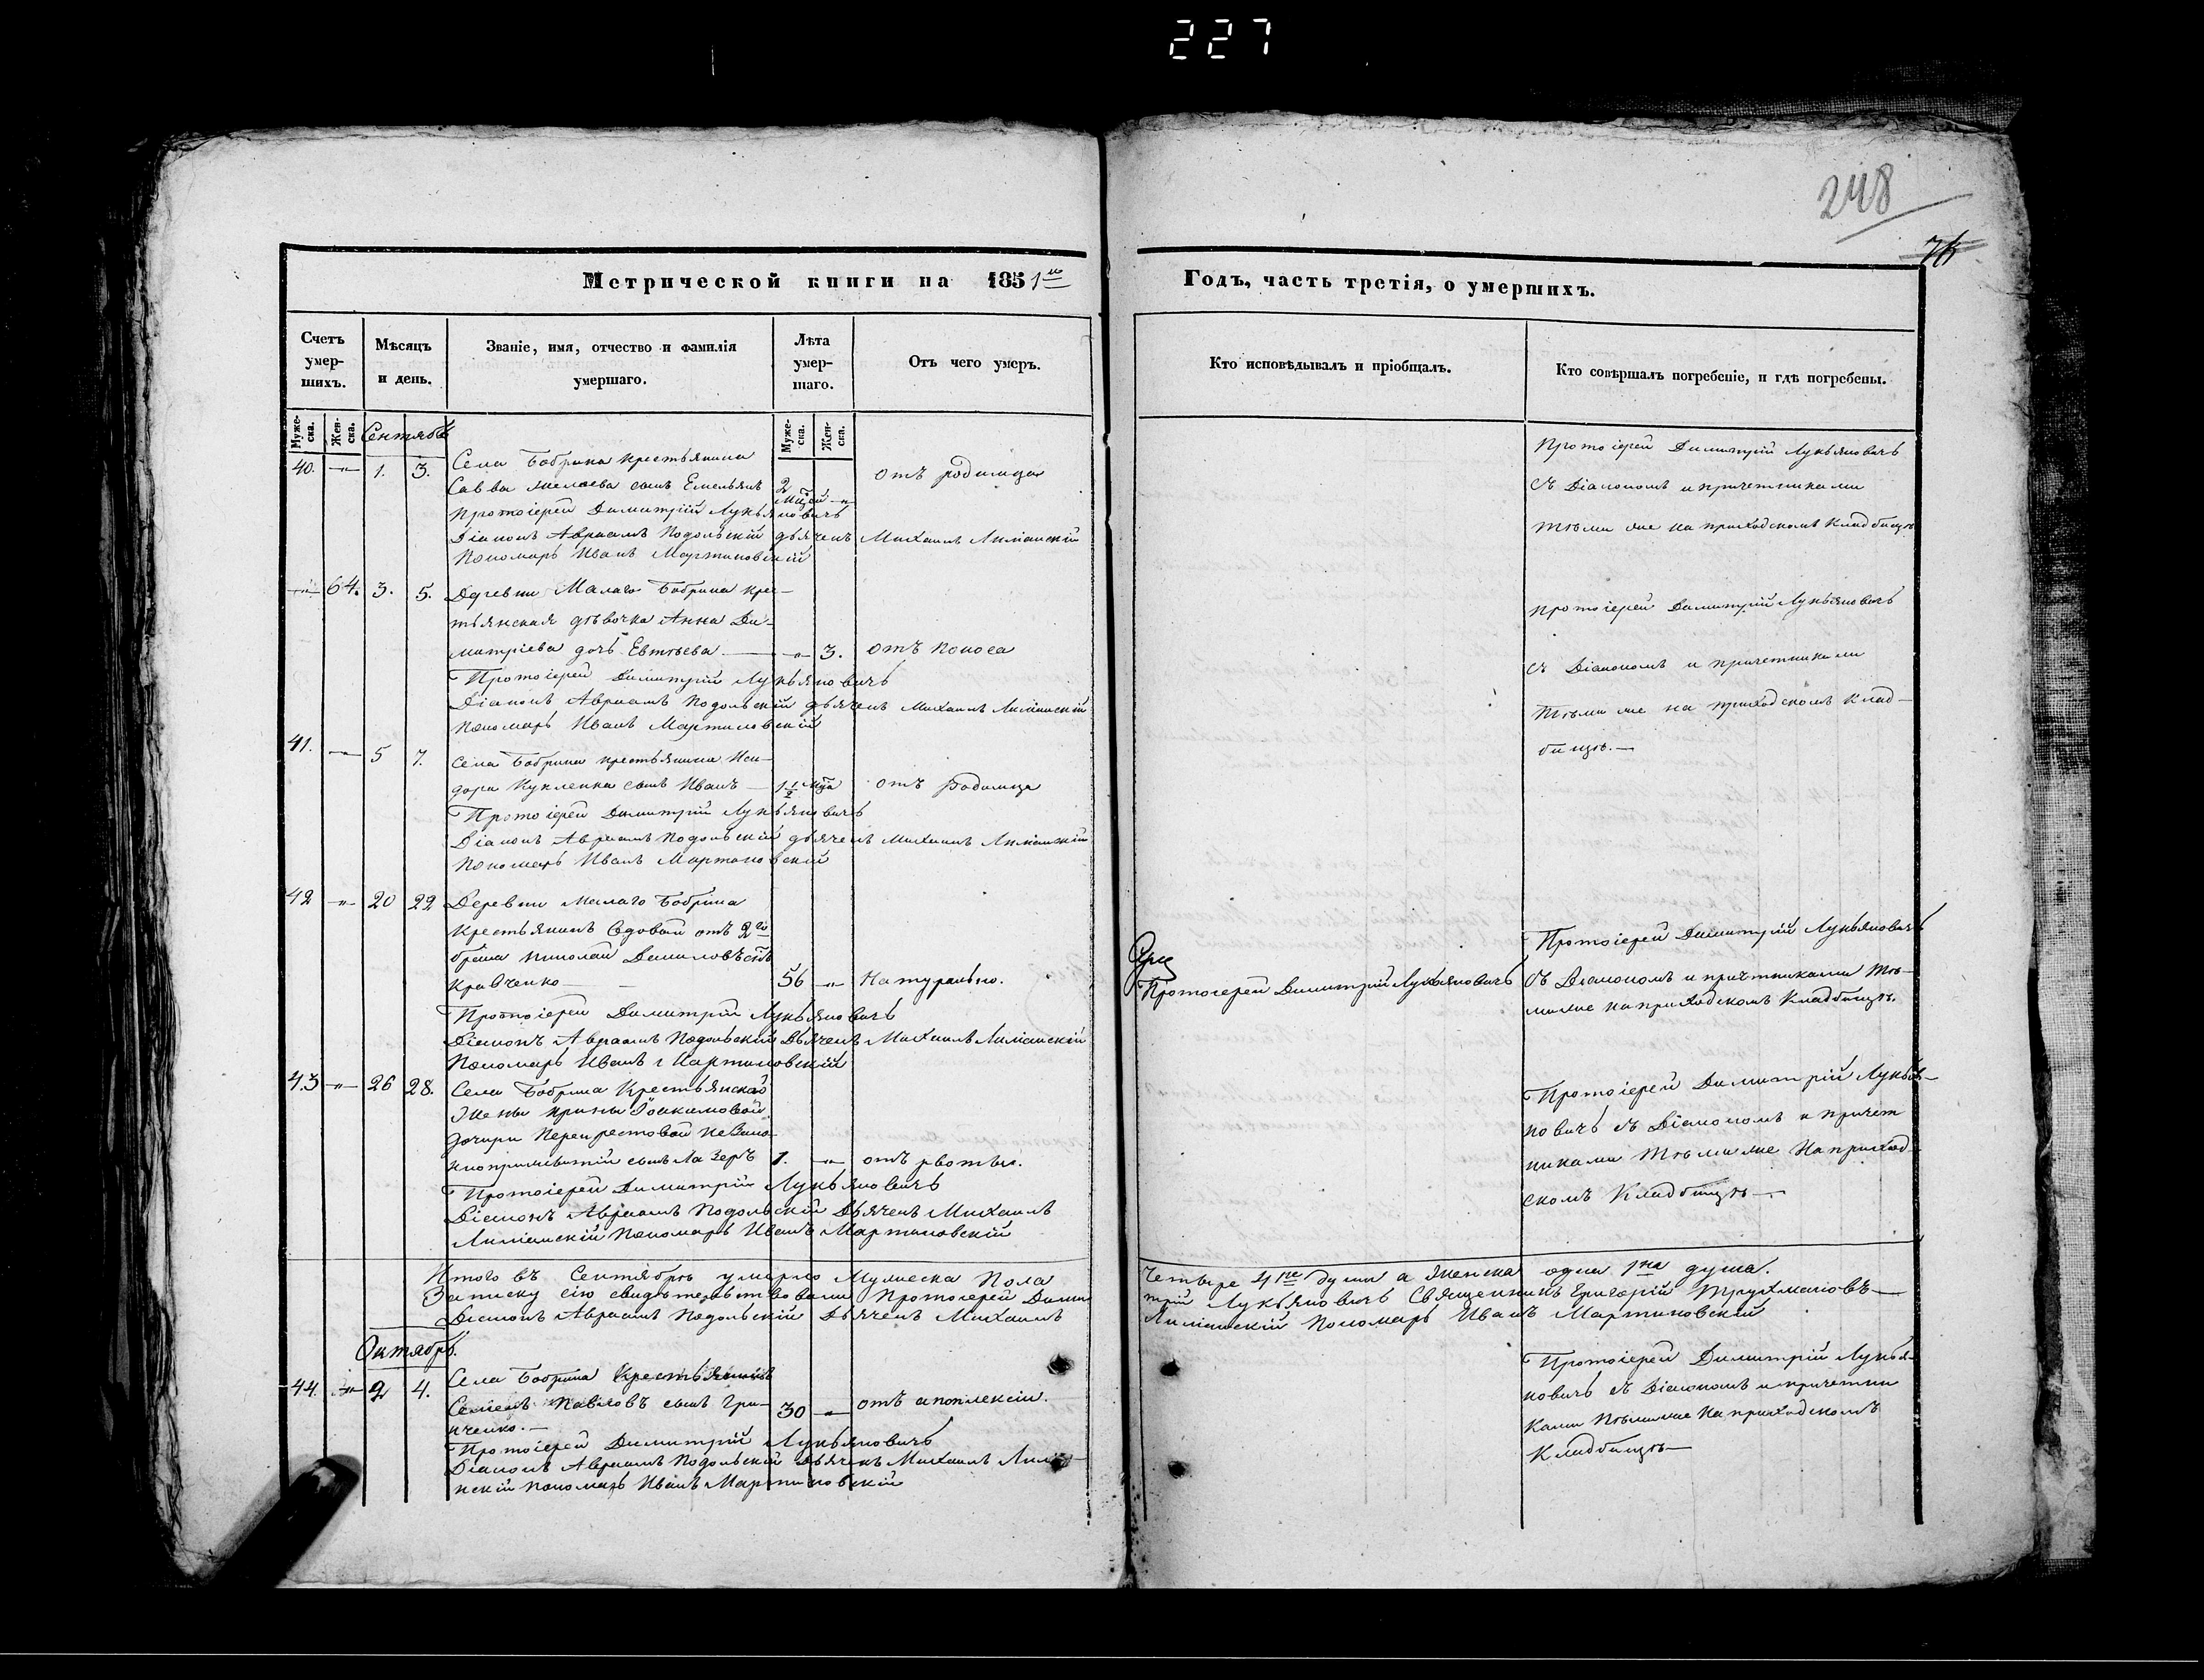 227
248
76
Метрической книги на 1851го Годъ, часть третія, о умершихъ.
Счетъ умер-шихъ.
Мѣсяцъ и день.
Званіе, имя, отчество и фамилія умершаго.
Лѣта умер-шаго.
Отъ чего умеръ.
Кто исповѣдывалъ и пріобщалъ.
Кто совершалъ погребеніе, и гдѣ погребены.
Муже-ска. Жен-ска. Муже-ска. Жен-ска.
Сентябь
40. —"— 1. 3. Села Бобрика крестьянина
Саввы сынъ Емельянъ 2 мцей —"— отъ родимца
Протоіерей Димитрій Лукьяновичъ
Діаконъ Авраамъ Подольскій дьячекъ Михаилъ Лиманскій
Пономарь Иванъ Мартиновскій
Протоіерей Димитрій Лукьяновичъ
съ Діакономъ и причетниками
тѣми же на приходскомъ кладбищѣ
—"— 64. 3. 5. Деревни Малаго Бобрика крес-
тьянская дѣвочка Анна Ди-
митріева дочь Евтѣева — —"— 3. отъ поноса
Протоіерей Димитрій Лукьяновичъ
Діаконъ Авраамъ Подольскій дьячекъ Михаилъ Лиманскій
Пономарь Иванъ Мартиновскій
Протоіерей Димитрій Лукьяновичъ
съ Діакономъ и причетниками
тѣми же на приходскомъ клад-
бищѣ.—
41. —"— 5 7. Села Бобрика крестьянина Иси-
дора Кукленка сынъ Иванъ — 1½ мца отъ родимца
Протоіерей Димитрій Лукьяновичъ
Діаконъ Авраамъ Подольскій дьячекъ Михаилъ Лиманскій
Пономарь Иванъ Мартиновскій
42 —"— 20 22 Деревни Малаго Бобрика
Крестьянинъ вдовый отъ 2го
брака Николай Даниловъ снъ
Кравченко — 56 —"— Натурально.
Протоіерей Димитрій Лукьяновичъ
Діаконъ Авраамъ Подольскій Дьячекъ Михаилъ Лиманскій
Пономарь Иванъ Мартиновскій
Протоіерей Димитрій Лукьяновичъ
Протоіерей Димитрій Лукьяновичъ
Съ Діакономъ и причтниками тѣ-
миже на приходскомъ кладбищѣ.
43 —"— 26 28. Села Бобрика Крестьянской
Жены Ирины Іоакимовой
дочери Перекрестовой незако-
ноприжитый сынъ Лазарь 1. —"— отъ рвоты.
Протоіерей Димитрій Лукьяновичъ
Діаконъ Авраамъ Подольскій Дьячекъ Михаилъ
Лиманскій Пономарь Иванъ Мартиновскій
Протоіерей Димитрій Лукья-
новичъ съ Діакономъ и причет
никами тѣмиже на приход
скомъ кладбищѣ—
Итого въ Сентябрѣ умерло Мужеска Пола Четыре 4ре души а женска одна 1на душа.
Записку сію свидѣтельствовали Протоіерей Дими трій Лукьяновичъ Священникъ Григорій
Діаконъ Авраамъ Подольскій Дьячекъ Михаилъ Лиманскій Пономарь Иванъ Мартиновскій
Октябрь.
44. —"— 2 4. Села Бобрика Крестьянинъ
Семенъ Павловъ сынъ Гри-
нченко.— 30 —"— отъ апоплексіи.
Протоіерей Димитрій Лукьяновичъ
Діаконъ Авраамъ Подольскій Дьячекъ Михаилъ Лима-
нскій Пономарь Иванъ Мартиновскій
Протоіерей Димитрій Лукья-
новичъ съ Діакономъ и причетни
ками тѣмиже на приходскомъ
Кладбищѣ—